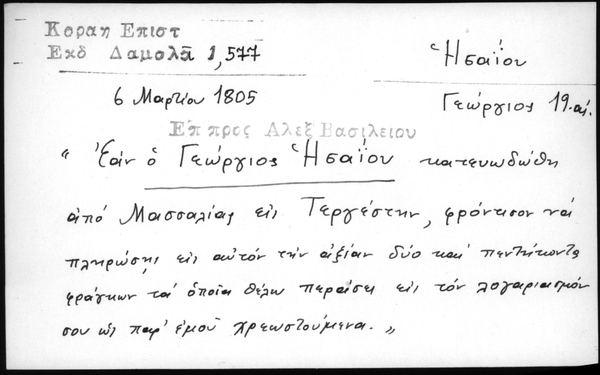 Κοραη Επιστ
Εκδ Δαμαλᾶ 1,577
Ἡσαΐου
6 Μαρτίου 1805
Γεώργιος 19. αἰ.
Επ προς Αλεξ Βασιλειου
" Ἐάν ὁ Γεώργιος Ἡσαΐου κατευωδώθη
ἀπό Μασσαλίας εἰς Τεργέστην, φρόντισον νά
πληρώσῃς εἰς αὐτόν τήν ἀξίαν δύο καί πεντήκοντα
φράγκων τά ὁποῖα θέλω περάσει εἰς τόν λογαριασμόν
σου ὡς παρ' ἐμοῦ χρεωστούμενα. "